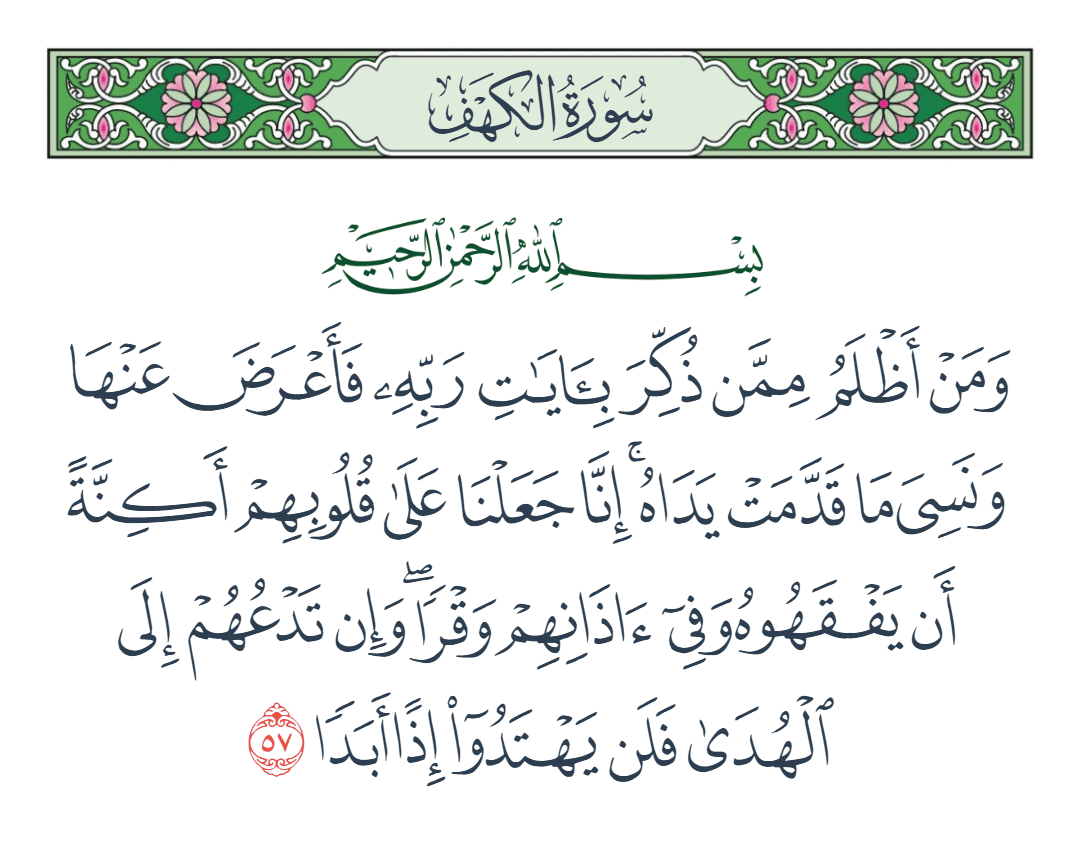 سُورَةُ الكَهْفِ
بِسْمِ ٱللَّهِ ٱلرَّحْمَٰنِ ٱلرَّحِيمِ
وَمَنْ أَظْلَمُ مِمَّن ذُكِّرَ بِـَٔايَٰتِ رَبِّهِۦ فَأَعْرَضَ عَنْهَا
وَنَسِىَ مَا قَدَّمَتْ يَدَاهُ ۚ إِنَّا جَعَلْنَا عَلَىٰ قُلُوبِهِمْ أَكِنَّةً
أَن يَفْقَهُوهُ وَفِىٓ ءَاذَانِهِمْ وَقْرًا ۖ وَإِن تَدْعُهُمْ إِلَى
ٱلْهُدَىٰ فَلَن يَهْتَدُوٓا۟ إِذًا أَبَدًا ٥٧